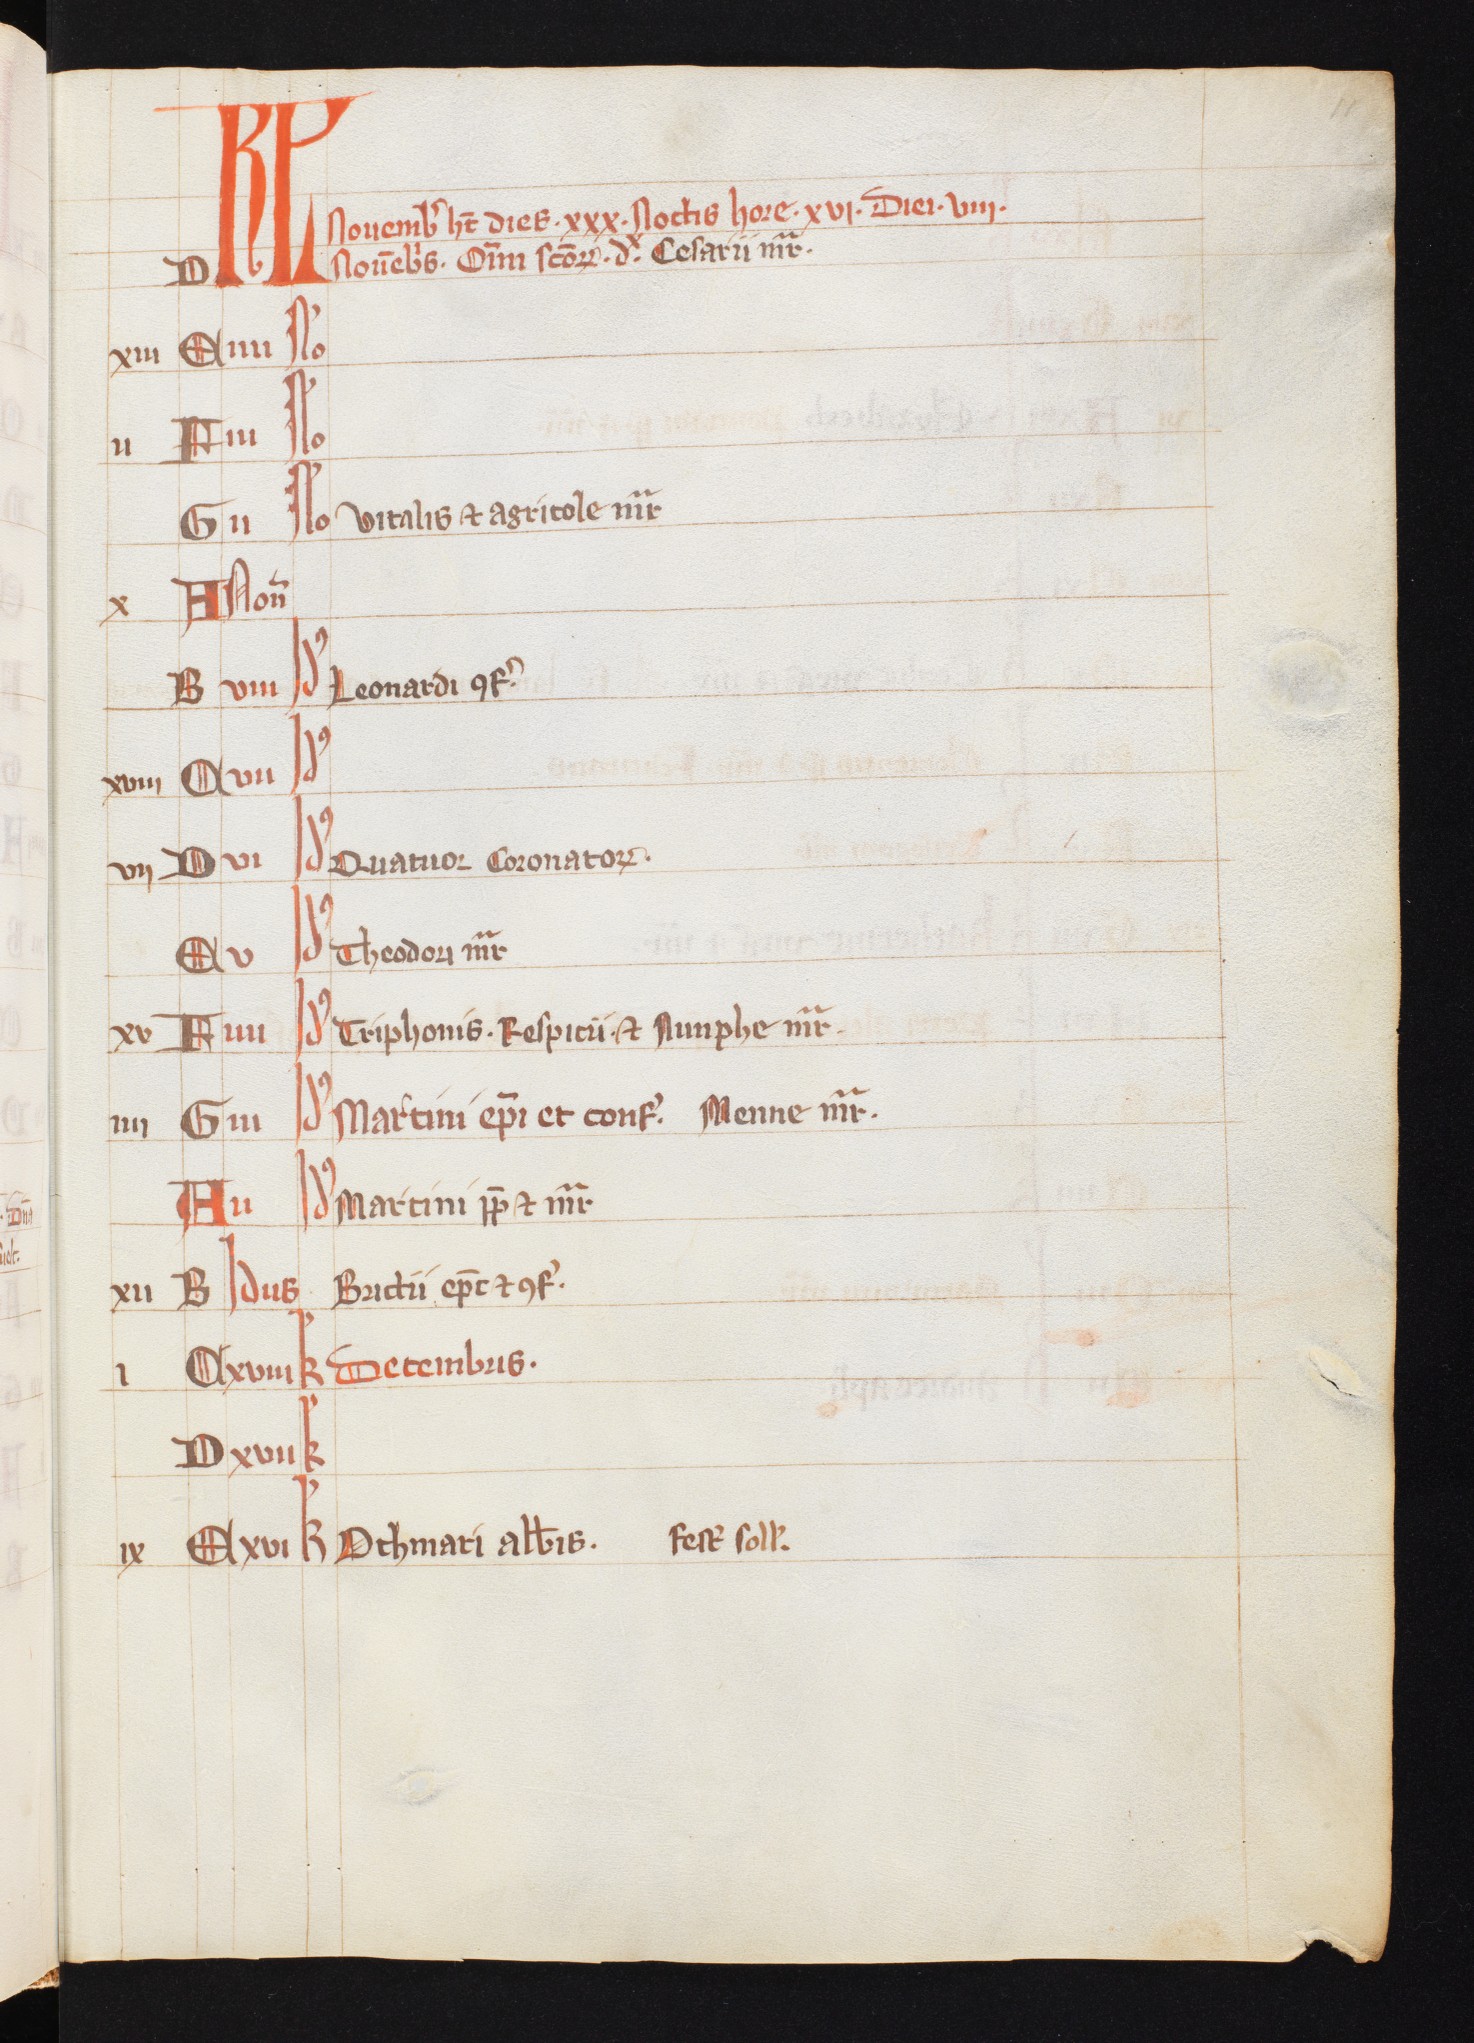 11
KL Nouembr̄ ht̄ dies · xxx · Noctis hore · xvi · Diei · viii ·
D Nouēbꝛs · Oīm scōꝝ · dx. Cesarii mr̄ ·
xiii E iiii No
ii F iii No
G ii No Vitalis ⁊ agricole mr̄
x A Non̄
B viii Idꝰ Leonardi ꝯf.
xviii C vii Idꝰ
vii D vi Idꝰ Quatuor Coronatoꝝ.
E v Idꝰ Theodori mr̄
xv F iiii Idꝰ Triphonis · Respicii · ⁊ Nimphe mr̄ ·
iiii G iii Idꝰ Martini ep̄i et conf. Menne mr̄ ·
A ii Idꝰ Martini pp̄ ⁊ mr̄
xii B Idus Brictii ep̄c ⁊ ꝯf.
i C xviii k Decembris ·
D xvii k
ix E xvi k Othmari abb̄is · fest̄ soll.